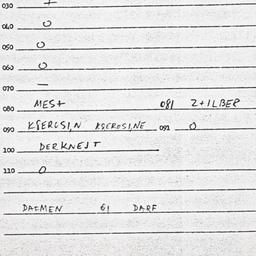 030 +
040 O
050 O
060 O
070 —
080 MES+ 081 Z+ILBER
090 KSEROSIN KSEROSINE 091 O
100 DERKNEST
110 O
DAIMEN 61 DARF